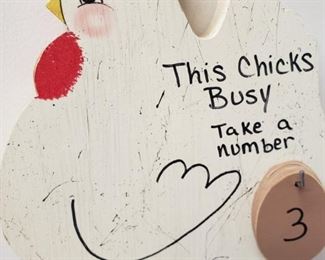 This Chicks
Busy
Take a
number
3